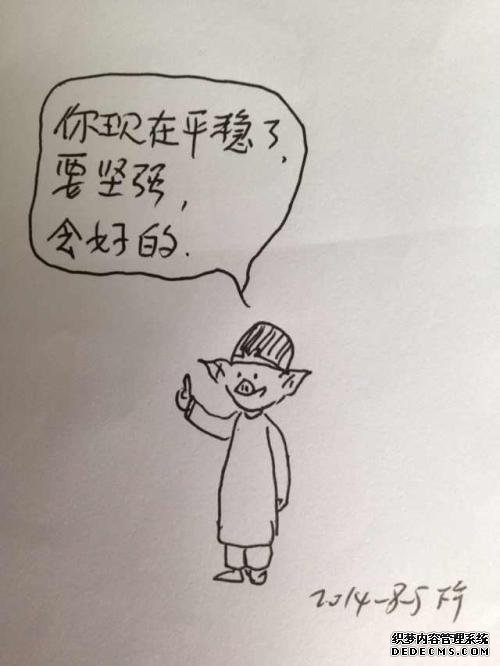 你现在平稳了,
要坚强,
会好的.
2014-8-5
织梦内容管理系统
DEDECMS.COM